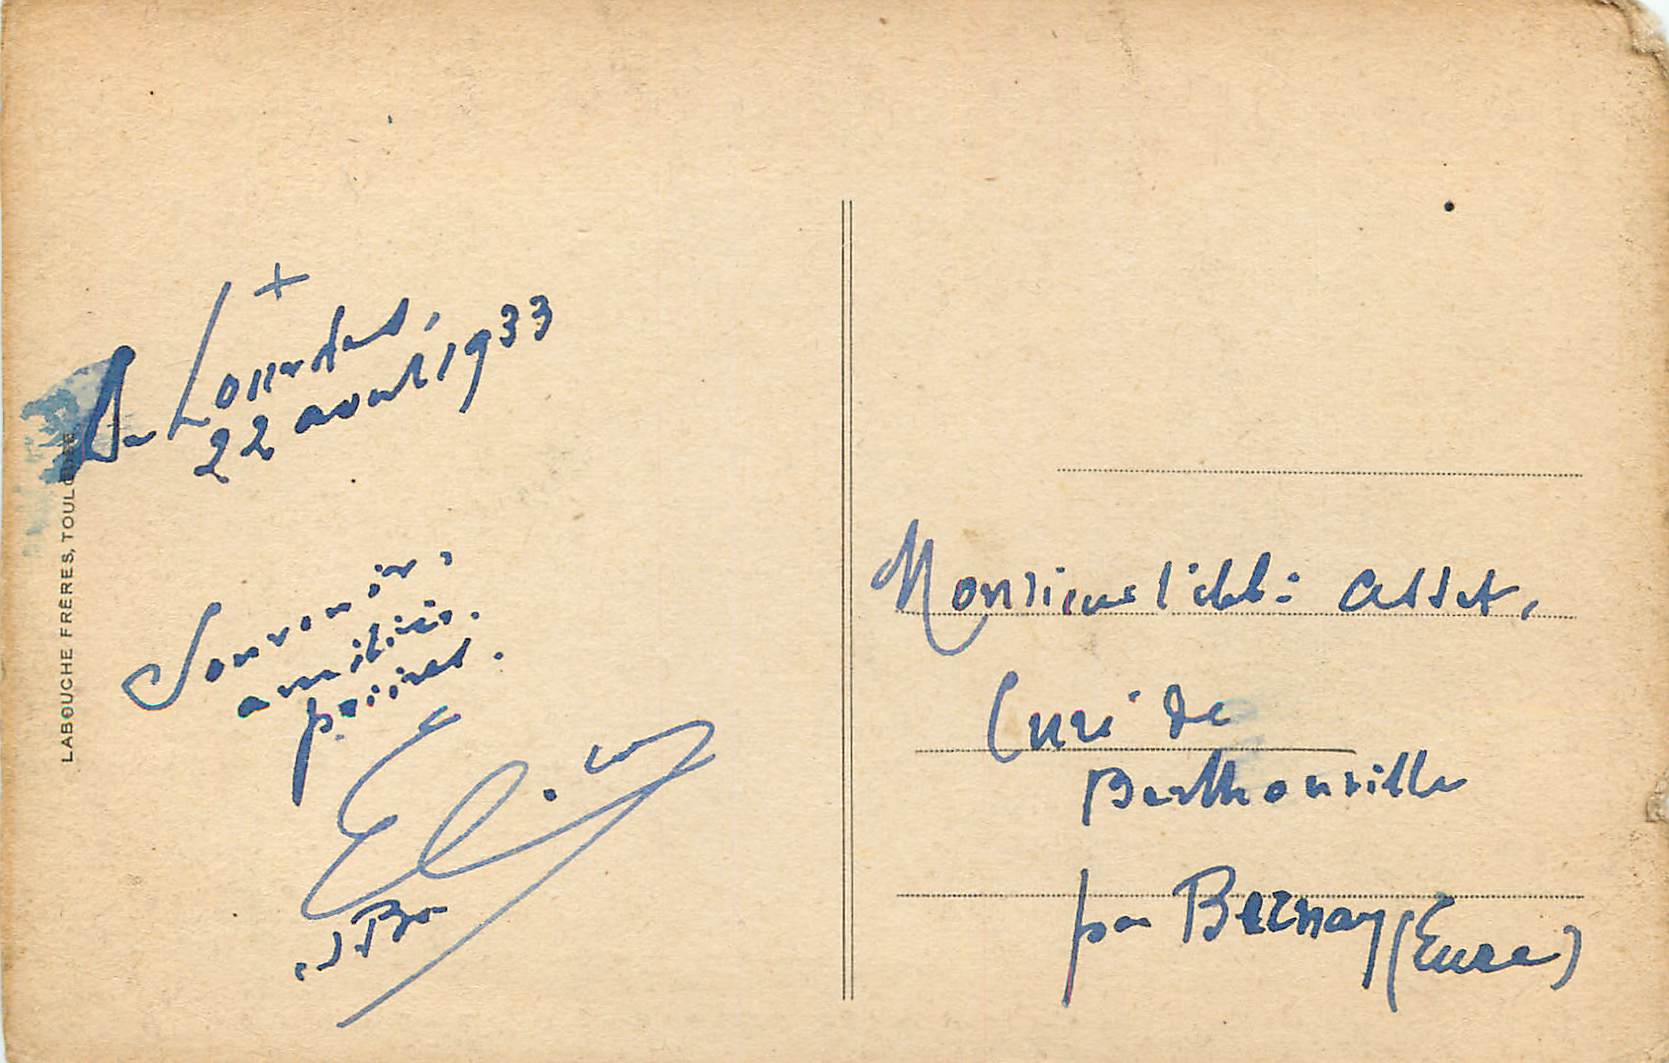 +
De Lourdes,
22 avril 1933
Souvenir,
amitiés.
prières.
LABOUCHE FRÈRES, TOULOUSE
Monsieur l'abbé Asset,
Curé de
Berthouville
par Bernay (Eure)